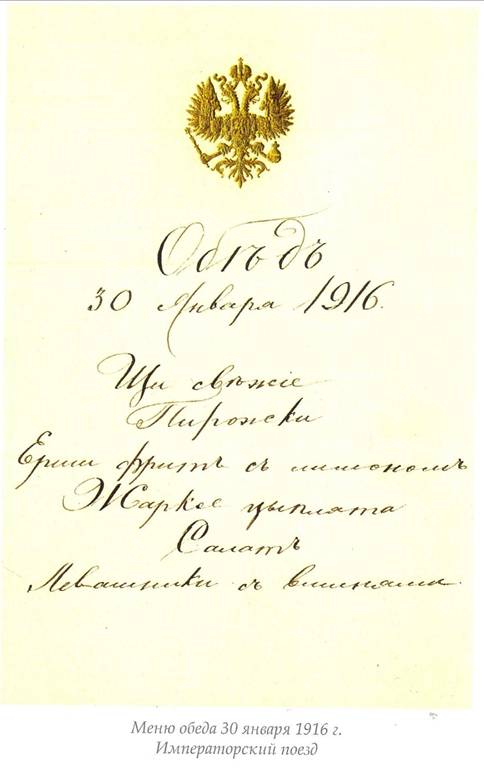 Обѣдъ
30 Января 1916.
Щи свѣжіе
Пирожки
Ерши фритъ съ лимономъ
Жаркое цыплята
Салатъ
Левашники съ вишнями.
Меню обеда 30 января 1916 г.
Императорский поезд